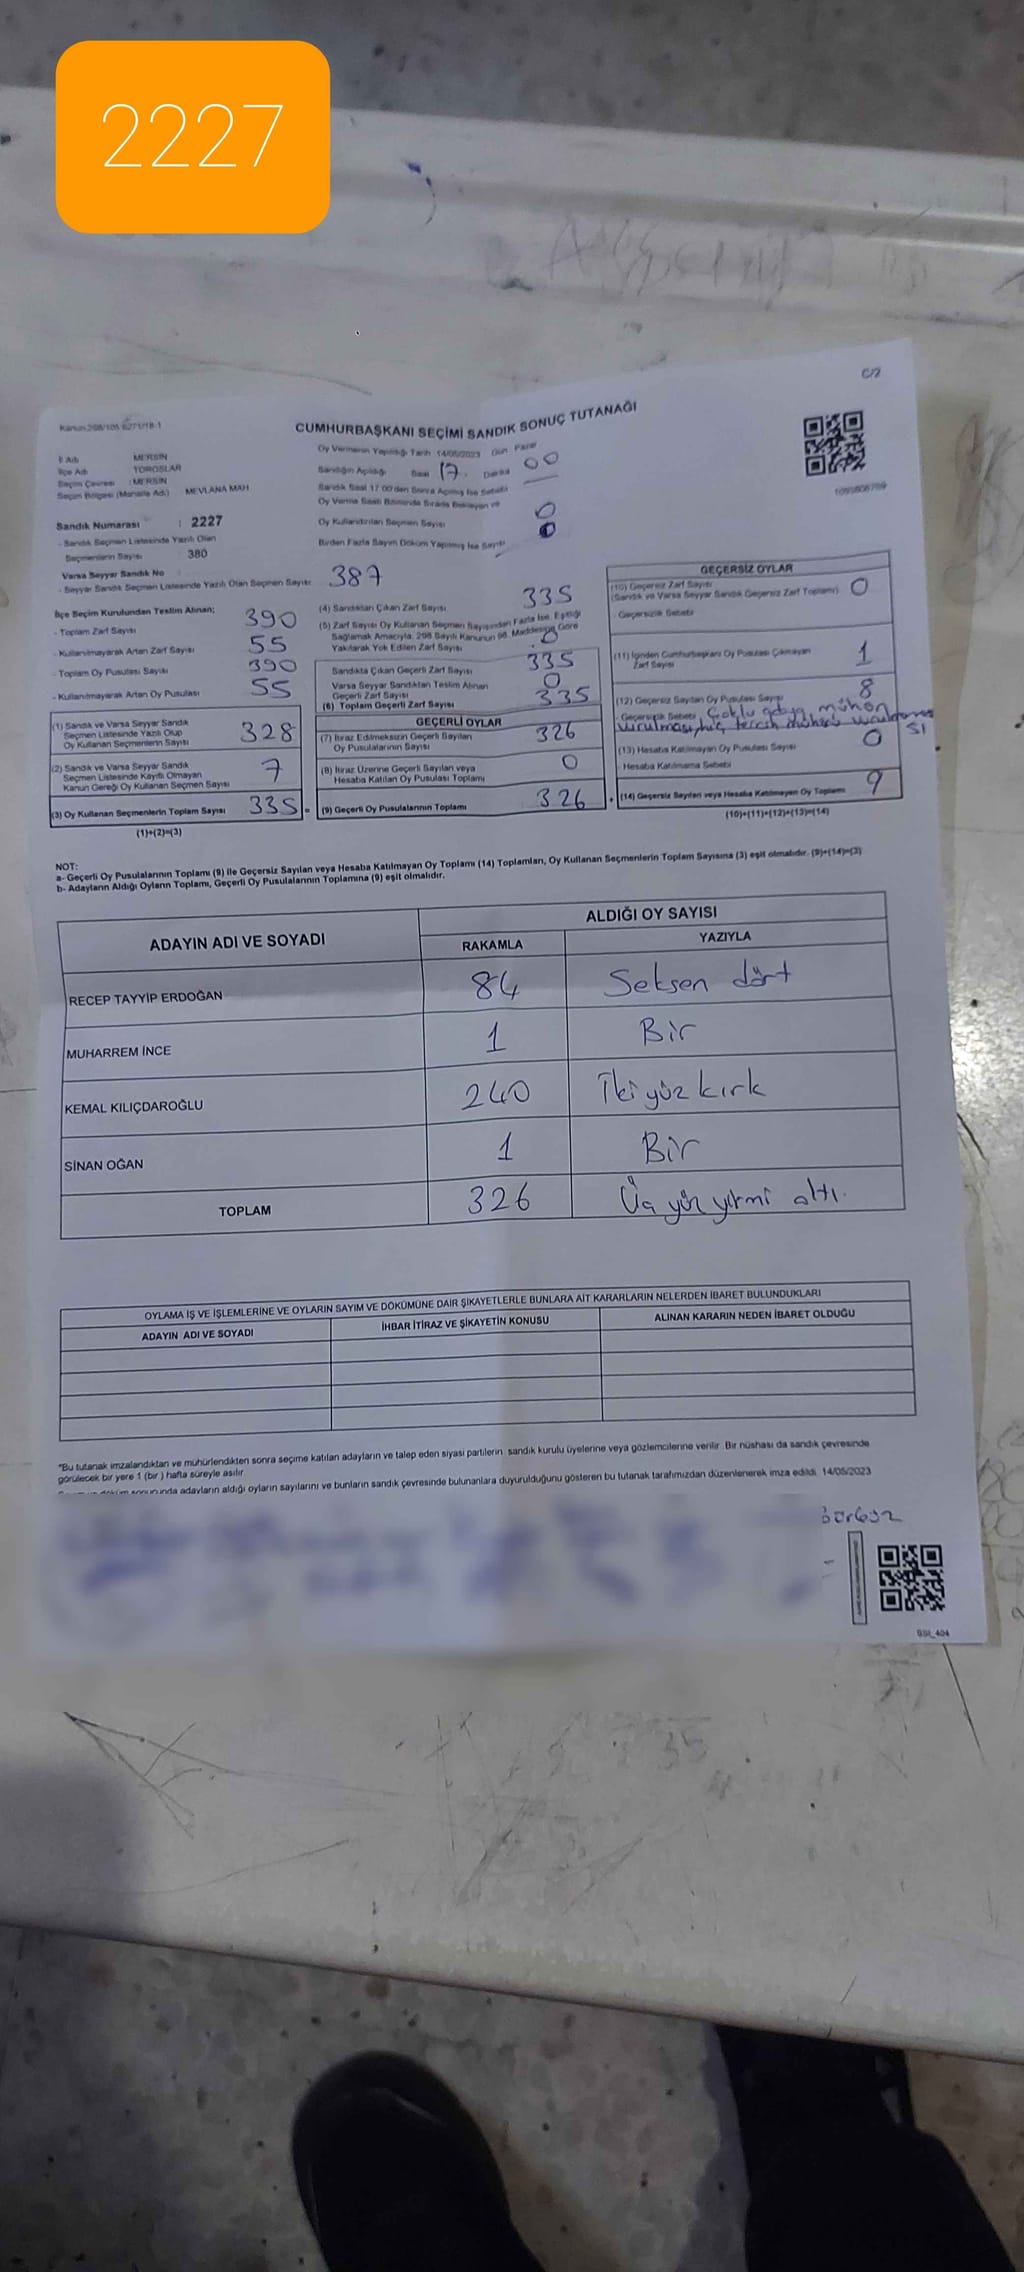 2227
C/2
CUMHURBAŞKANI SEÇİMİ SANDIK SONUÇ TUTANAĞI
İl Adı : MERSİN
İlçe Adı : TOROSLAR
Seçim Çevresi : MERSİN
Seçim Bölgesi (Mahalle Adı) MEVLANA MAH
Sandık Numarası : 2227
- Sandık Seçmen Listesinde Yazılı Olan
Seçmenlerin Sayısı 380
Varsa Seyyar Sandık No
- Seyyar Sandık Seçmen Listesinde Yazılı Olan Seçmen Sayısı 387
Oy Vermenin Yapıldığı Tarih 14/05/2023 Gün Pazar
Sandığın Açıldığı Saat 17. Dakika 00
Sandık Saat 17.00'den Sonra Açılmış İse Sebebi
Oy Kullandırılan Seçmen Sayısı 0
Birden Fazla Sayım Döküm Yapılmış İse Sayısı 0
İlçe Seçim Kurulundan Teslim Alınan;
- Toplam Zarf Sayısı 390
- Kullanılmayarak Artan Zarf Sayısı 55
- Toplam Oy Pusulası Sayısı 390
- Kullanılmayarak Artan Oy Pusulası 55
(1) Sandık ve Varsa Seyyar Sandık
Seçmen Listesinde Yazılı Olup
Oy Kullanan Seçmenlerin Sayısı 328
(2) Sandık ve Varsa Seyyar Sandık
Seçmen Listesinde Kayıtlı Olmayan
Kanun Gereği Oy Kullanan Seçmen Sayısı 7
(3) Oy Kullanan Seçmenlerin Toplam Sayısı 335 =
(1)+(2)=(3)
(4) Sandıktan Çıkan Zarf Sayısı 335
(5) Zarf Sayısı Oy Kullanan Seçmen Sayısından Fazla İse, Eşitliği
Sağlamak Amacıyla, 298 Sayılı Kanunun 98. Maddesine Göre
Yakılarak Yok Edilen Zarf Sayısı 0
Sandıkta Çıkan Geçerli Zarf Sayısı 335
Varsa Seyyar Sandıktan Teslim Alınan
Geçerli Zarf Sayısı 0
(6) Toplam Geçerli Zarf Sayısı 335
GEÇERLİ OYLAR
(7) İtiraz Edilmeksizin Geçerli Sayılan
Oy Pusulalarının Sayısı 326
(8) İtiraz Üzerine Geçerli Sayılan veya
Hesaba Katılan Oy Pusulası Toplamı 0
(9) Geçerli Oy Pusulalarının Toplamı 326 +
GEÇERSİZ OYLAR
(10) Geçersiz Zarf Sayısı
(Sandık ve Varsa Seyyar Sandık Geçersiz Zarf Toplamı) 0
- Geçersizlik Sebebi
(11) İçinden Cumhurbaşkanı Oy Pusulası Çıkmayan
Zarf Sayısı 1
(12) Geçersiz Sayılan Oy Pusulası Sayısı 8
- Geçersizlik Sebebi Çoklu adya mühür
vurulması, hiç tercih mühürü vurulmama
sı
(13) Hesaba Katılmayan Oy Pusulası Sayısı 0
- Hesaba Katılmama Sebebi
(14) Geçersiz Sayılan veya Hesaba Katılmayan Oy Toplamı 9
(10)+(11)+(12)+(13)=(14)
NOT:
a- Geçerli Oy Pusulalarının Toplamı (9) ile Geçersiz Sayılan veya Hesaba Katılmayan Oy Toplamı (14) Toplamları, Oy Kullanan Seçmenlerin Toplam Sayısına (3) eşit olmalıdır. (9)+(14)=(3)
b- Adayların Aldığı Oyların Toplamı, Geçerli Oy Pusulalarının Toplamına (9) eşit olmalıdır.
ADAYIN ADI VE SOYADI
ALDIĞI OY SAYISI
RAKAMLA YAZIYLA
RECEP TAYYİP ERDOĞAN 84 Seksen dört
MUHARREM İNCE 1 Bir
KEMAL KILIÇDAROĞLU 240 İkiyüz kırk
SİNAN OĞAN 1 Bir
TOPLAM 326 Üç yüz yirmi altı.
OYLAMA İŞ VE İŞLEMLERİNE VE OYLARIN SAYIM VE DÖKÜMÜNE DAİR ŞİKAYETLERLE BUNLARA AİT KARARLARIN NELERDEN İBARET BULUNDUKLARI
ADAYIN ADI VE SOYADI İHBAR İTİRAZ VE ŞİKAYETİN KONUSU ALINAN KARARIN NEDEN İBARET OLDUĞU
"Bu tutanak imzalandıktan ve mühürlendikten sonra seçime katılan adayların ve talep eden siyasi partilerin sandık kurulu üyelerine veya gözlemcilerine verilir. Bir nüshası da sandık çevresinde
görülecek bir yere 1 (bir) hafta süreyle asılır.
adayların aldığı oyların sayılarını ve bunların sandık çevresinde bulunanlara duyurulduğunu gösteren bu tutanak tarafımızdan düzenlenerek imza edildi. 14/05/2023